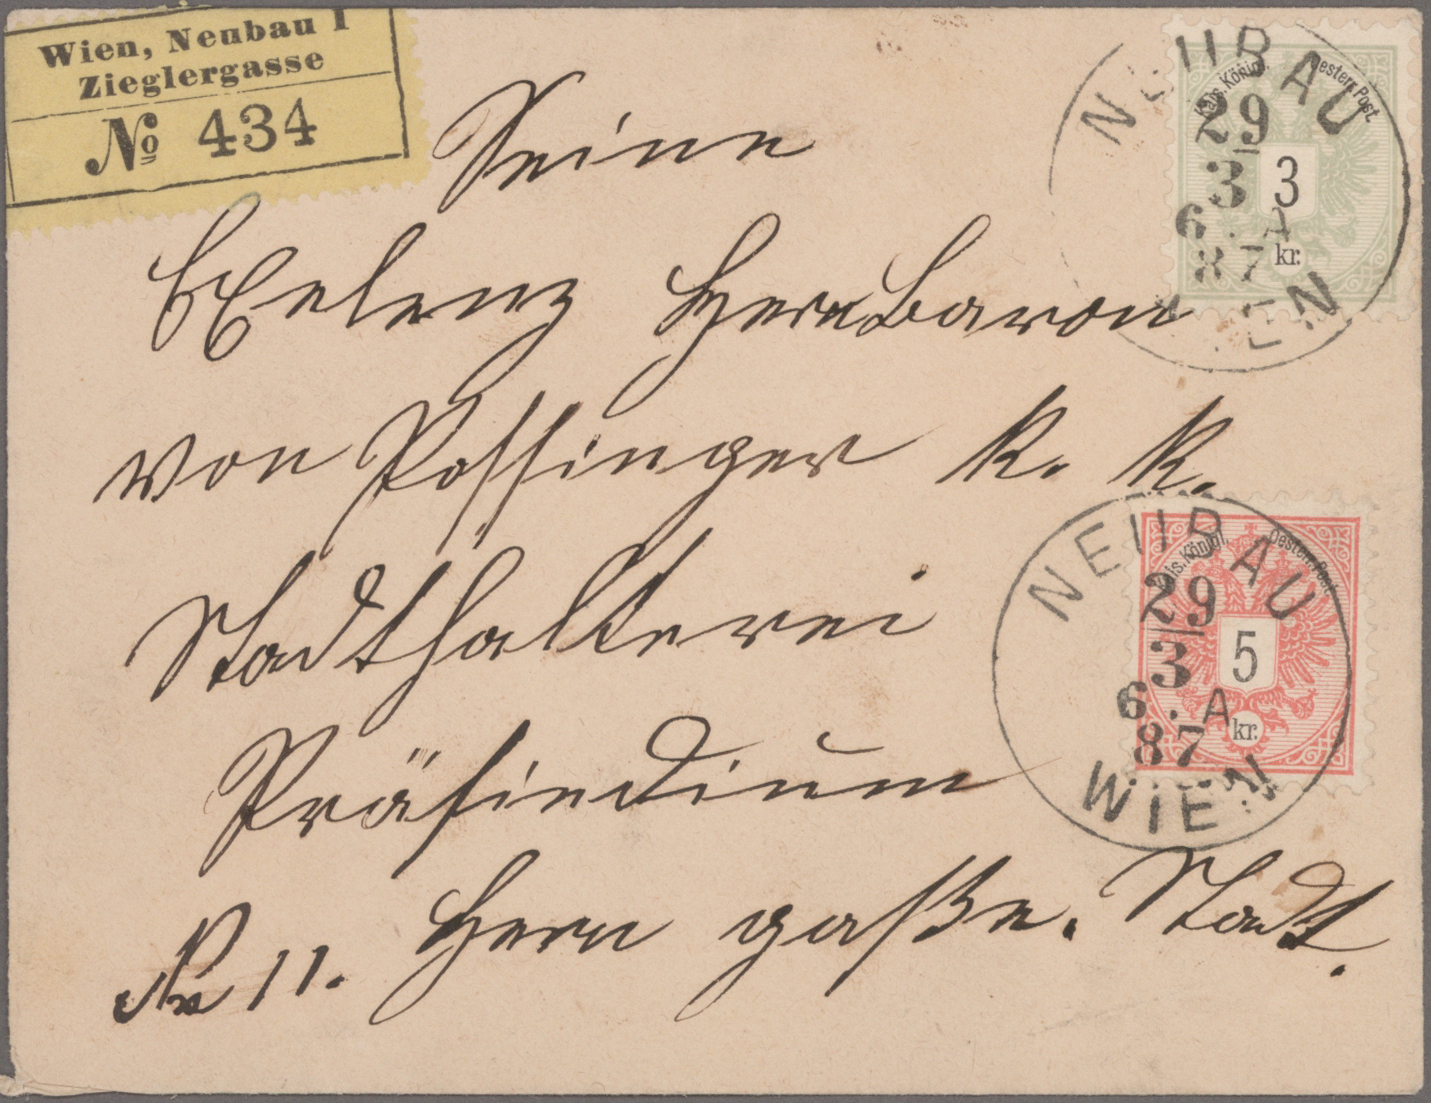 Wien, Neubau 1
Zieglergasse
No 434
Seine
Exelenz Herrn Baron
von Possinger k. k.
Stadthalterei
Präsidium
No 11. Hern gaße. Stadt.
Kais. Königl. Oesterr. Post
3
kr.
NEUBAU
29
3
6 . A
87
WIEN
Kais. Königl. Oesterr. Post
5
kr.
NEUBAU
29
3
6 . A
87
WIEN